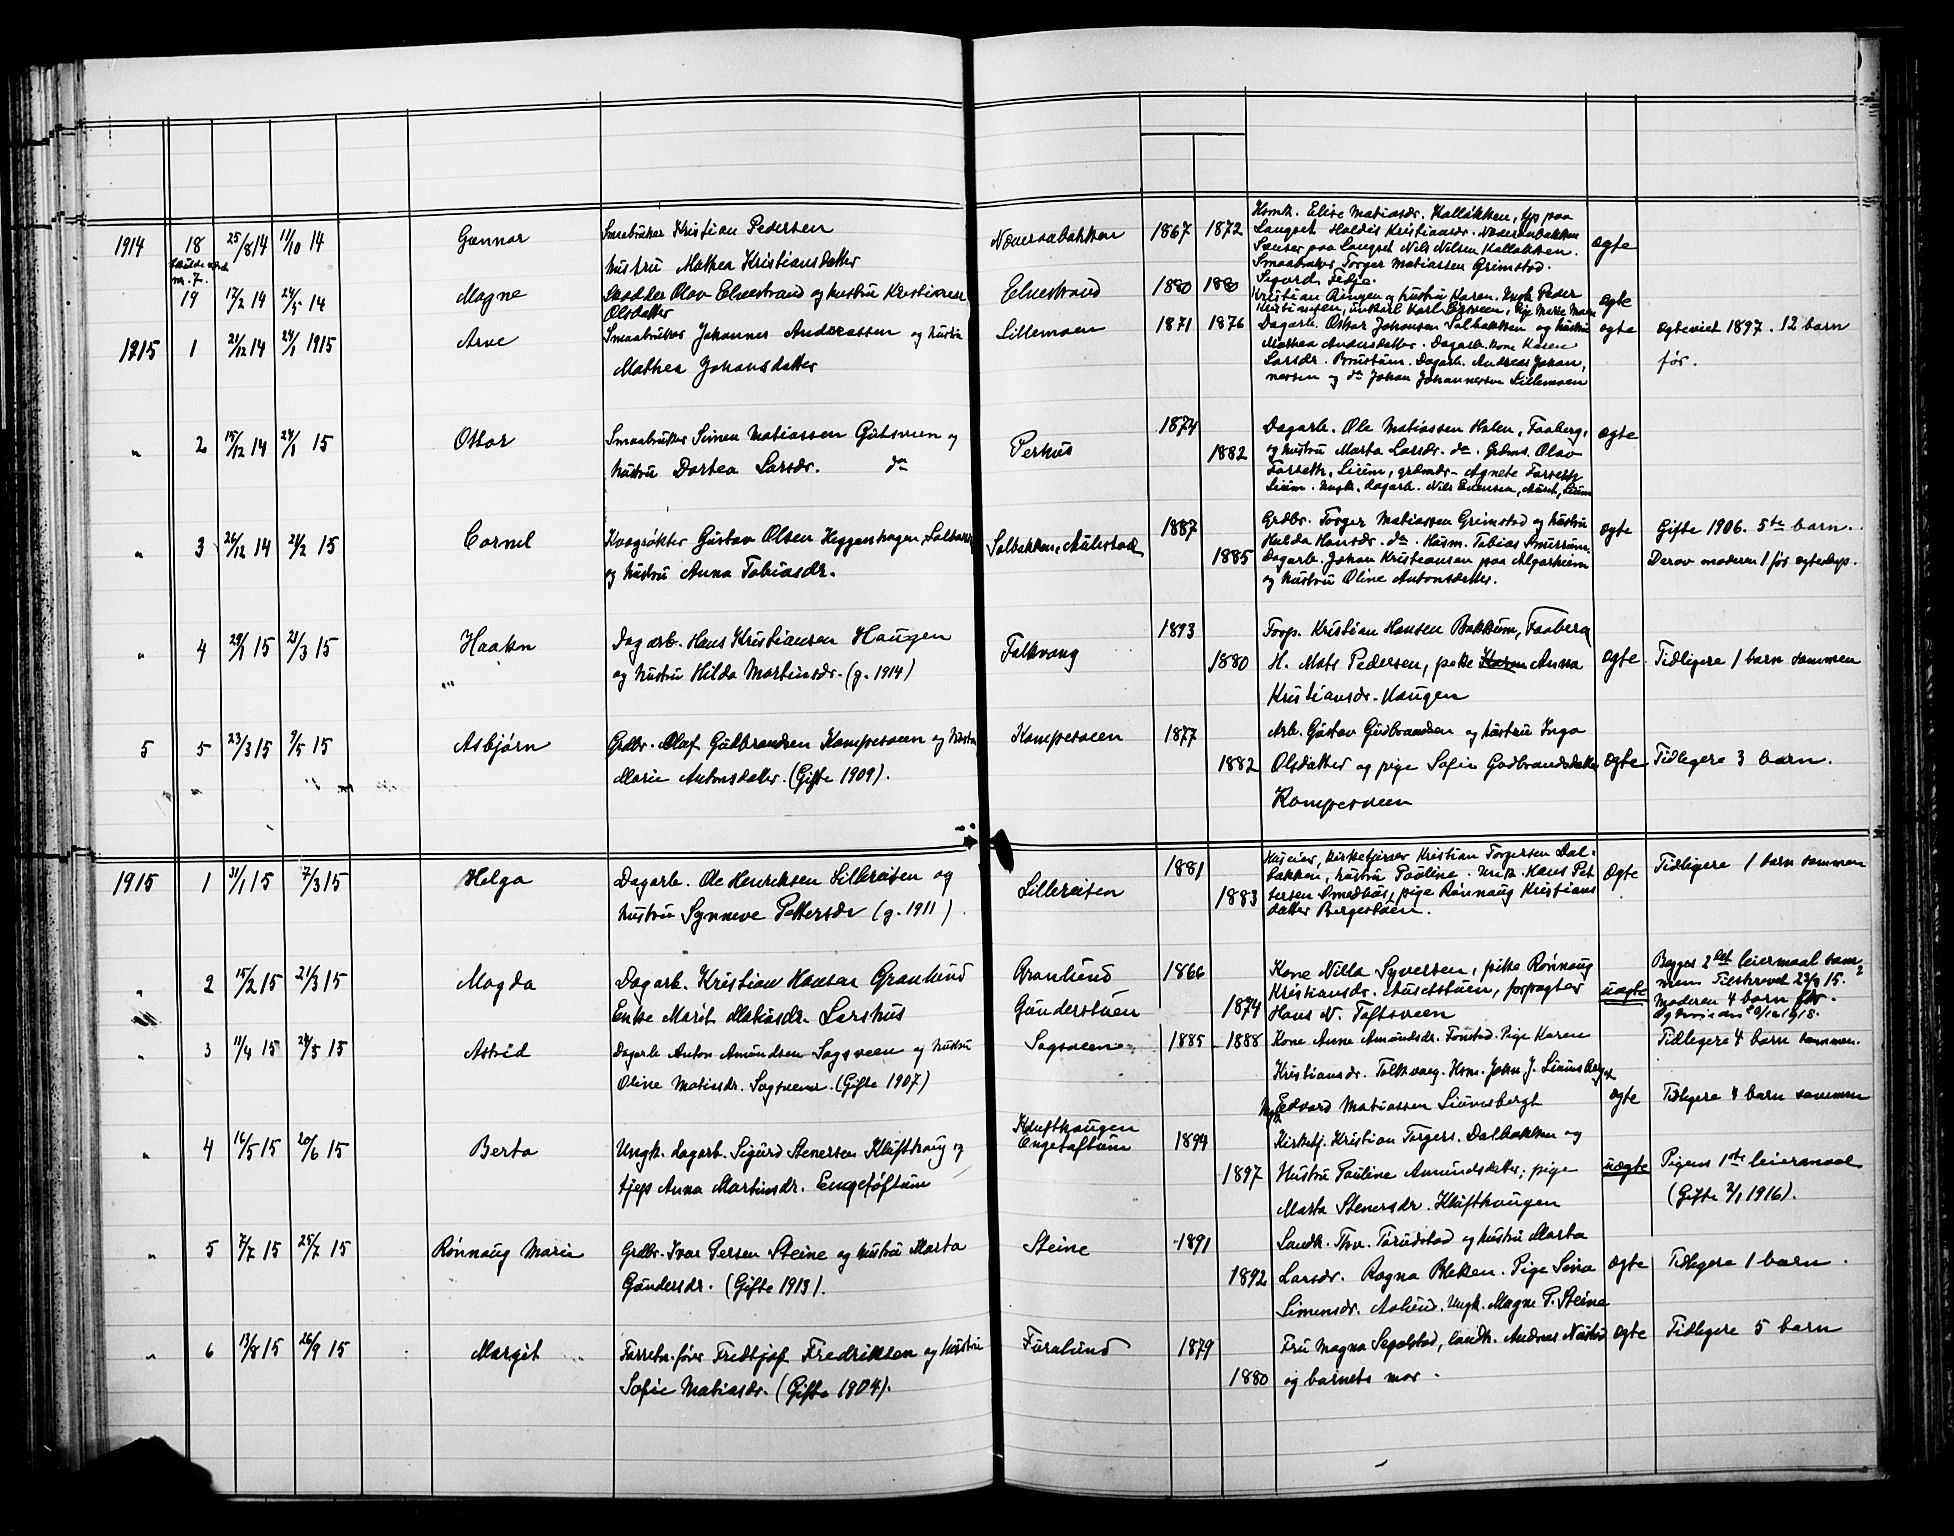 1914 18 25/8 14 11/10 14 Gunnar Kristian Pedersen Næveraabakken 1867 1872 ægte
hustru Mathea Kristiansdatter
Smaabruker Torger Matiassen Grimstad.
nr. 7.
19 17/2 14 24/5 14 Magne Olav Elvestrand og hustru Kristianne Elvestrand 1880 1880 Sigurd ægte
Olsdatter
Kristian Ringen og hustru Karen. Ungk. Peder
1915 1 21/12 14 24/1 1915 Arve Smaabruker Johannes Andreassen og hustru Lillemoen 1871 1876 Dagarb. Oskar Johansen Solbakken og hustru ægte Ægteviet 1897. 12 barn
Mathea Johansdatter Mathea Andersdatter. Dagarb. kone Karen før.
Larsdr. Dagarb. Andreas Johan,
nessen og do Johan Johannessen Lillemoen
" 2 15/12 14 24/1 15 Ottar Smaabruker Simen Matiassen og Perhus 1874 Dagarb. Ole Matiassen Holen, Faaberg, ægte
hustru Dortea Larsdr. do 1882 og hustru Marta Larsdr. do. Grdms. Olav
Forseth, Lium, grdmdr. Agnete Forseth
Lium. Ungk. dagarb. Nils Evensen, Lium
" 3 26/12 14 21/2 15 Cornel Gustav Olsen Heggenhagen, Solbakken Solbakken, Aulestad 1887 Grdbr. Torger Matiassen Grimstad og hustru ægte Gifte 1906. 5te barn.
og hustru Anna Tobiasdr. Hulda Hansdr. do. Husm. Tobias
1885 Dagarb. Johan Kristiansen paa Algarheim Derav moderen 1 før egteskap.
og hustru Oline Antonsdatter.
" 4 29/1 15 21/3 15 Haakon Dagarb. Hans Kristiansen Haugen Folkvang 1893 Torp. Kristian Hansen Bakkum, Faaberg
og hustru Hilda Martinsdr. (g. 1914) 1880 H. Mats Pedersen, pike Karen Anna ægte Tidligere 1 barn sammen
Kristiansdr. Haugen
5 5 23/3 15 9/5 15 Asbjørn Grdbr. Olaf Gulbrandsen Kampesveen og hustru Kampesveen 1877 Arb. Gustav Gudbrandsen og hustru Inga
Marie Antonsdatter. (Gifte 1909). 1882 Olsdatter og pige Sofie Gudbrandsdatter ægte Tidligere 3 barn.
Kampesveen
1915 1 31/1 15 7/3 15 Helga Dagarb. Ole Henriksen Lillereiten og Lillereiten 1881 Huseier, kirketjener Kristian Torgersen Dal- ægte Tidligere 1 barn sammen
hustru Synneve Pettersdr (g. 1911) 1883 bakken, hustru Pauline. Ungk. Hans Pet
tersen Smedhus, pige Rønnaug Kristians
datter Bergestuen.
" 2 15/2 15 21/3 15 Magda Dagarb. Kristian Hansen Granlund Granlund 1866 Kone Nilla Syversen, pike Rønnaug Begges 2det leiermaal sam-
Enke Marit Matiasdr. Larshus Gunderstuen 1874 Kristiansdr. forpagter uægte men Tilskrevet 23/9 15.
Hans N. Toftsveen Moderen 4 barn før.
" 3 11/4 15 24/5 15 Astrid Dagarb Anton Amundsen Sagsveen og hustru Sagsveen 1885 1888 Kone Anne Amundsdr. Fonstad. Pige Karen Tidligere 4 barn sammen.
Oline Matiasdr. Sagsveen. (Gifte 1907) Kristiansdr. Folkvang. Hsm. John J. Liumsberget
Ungk Edvard Matiassen Liumsberget ægte Tidligere 4 barn sammen
" 4 16/5 15 20/6 15 Berta Ungk. dagarb. Sigurd Stenersen Klufthaug og Klufthaugen 1894 Kirketj. Kristian Torgers. Dalbakken og
Engetoftum
tjeps Anna Martinsdr. Engetoftum 1897 Hustru Pauline Amundsdatter; pige uægte Pigens 1ste leiermaal
Marta Stenersdr. Klufthaugen (Gifte 2/1 1916).
" 5 7/7 15 25/7 15 Rønnaug Marie Grdbr. Ivar Persen Steine og hustru Marta Steine 1891 Landh. Thv. Torudstad og hustru Marta
Gundersdr. (Gifte 1913). 1892 Larsdr. Ragna Bleken. Pige Sina ægte Tidligere 1 barn.
Simensdr. Aalund. Ungk. Magne P. Steine
" 6 13/8 15 26/9 15 Margit Fredtjof Fredriksen og hustru Furulund 1879 Fru Magna Segelstad, landh. Andreas ægte Tidligere 5 barn
Sofie Matiasdr. (Gifte 1904). 1880 og barnets mor.